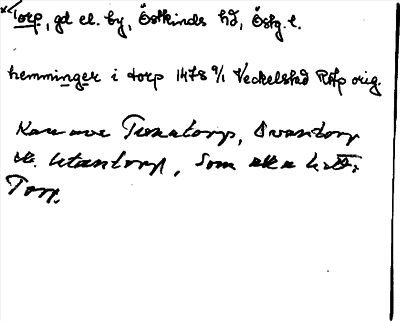 *Torp, gd el. by, Östkinds hd, Östg. l.
hemminger i torp 1478 9/1 Veckelstad RAp orig.
Kan ave Tunatorp, Ovantorp
el. Utantorp, som
Torp.